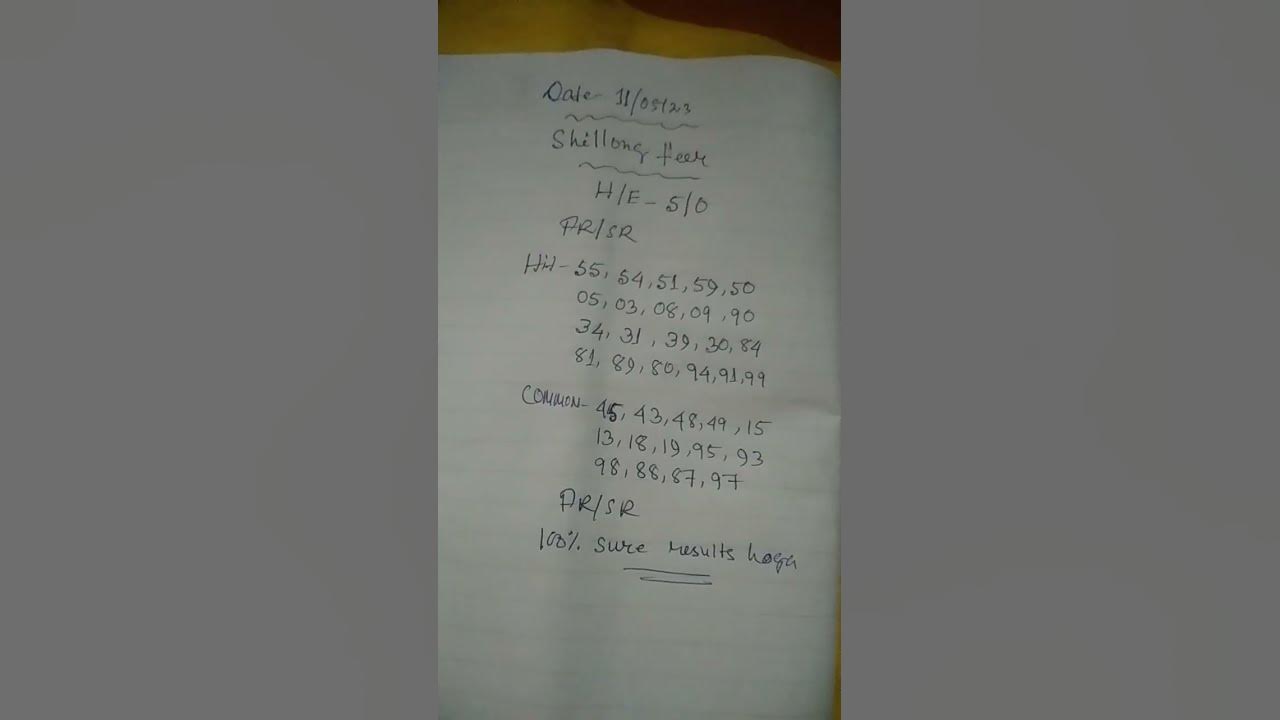 Date- 11/05/23
Shillong teer
H/E - 5/0
FR/SR
Hit - 55, 54, 51, 59, 50
05, 03, 08, 09, 90
34, 31, 39, 30, 84
81, 89, 80, 94, 91, 99
COMMON- 45, 43, 48, 49, 15
13, 18, 19, 95, 93
98, 88, 87, 97
FR/SR
100% sure results hoga